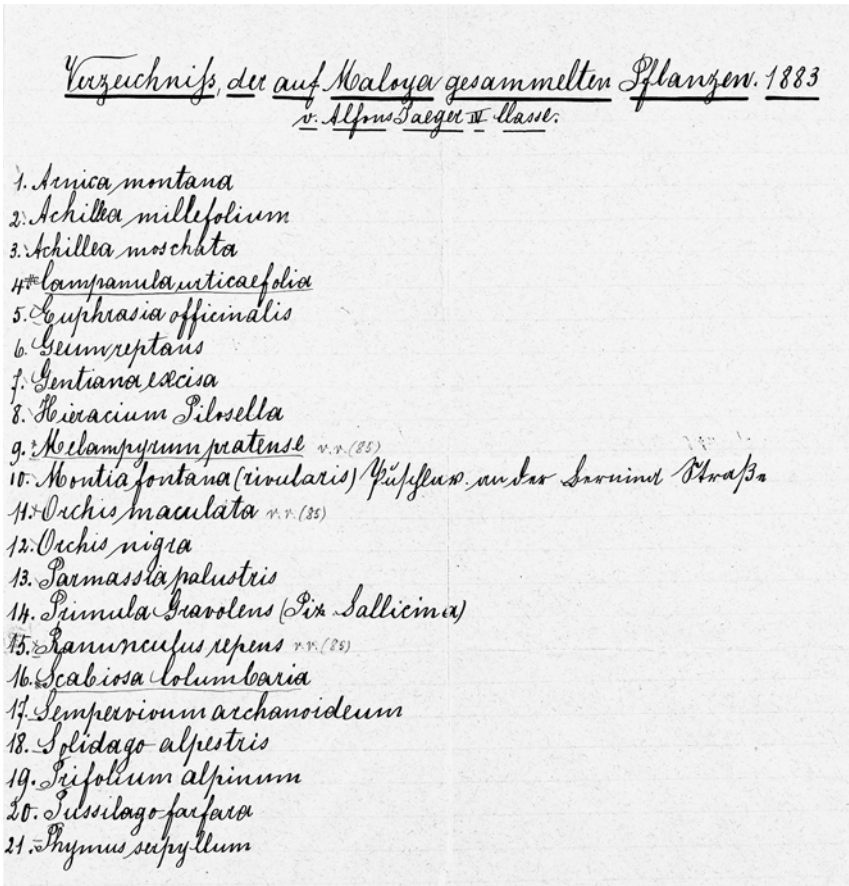 Verzeichniß, der auf Maloya gesammelten Pflanzen. 1883
v. Alfons Jaeger IV Classe.
1. Arnica montana
2. Achillea millefolium
3. Achillea moschata
4. Campanula urticaefolia
5. Euphrasia officinalis
6. Geum reptans
7. Gentiana excisa
8. Hieracium Pilosella
9. Melampyrum pratense v.v. (85)
10. Montia fontana (rivularis) Puschlav. an der Bernina Straße
11. Orchis maculata v.v. (85)
12. Orchis nigra
13. Parnassia palustris
14. Primula Graveolens (Piz Sallicina)
15. Ranunculus repens v.v. (85)
16. Scabiosa Columbaria
17. Sempervivum archanoideum
18. Solidago alpestris
19. Trifolium alpinum
20. Tussilago farfara
21. Thymus serpyllum